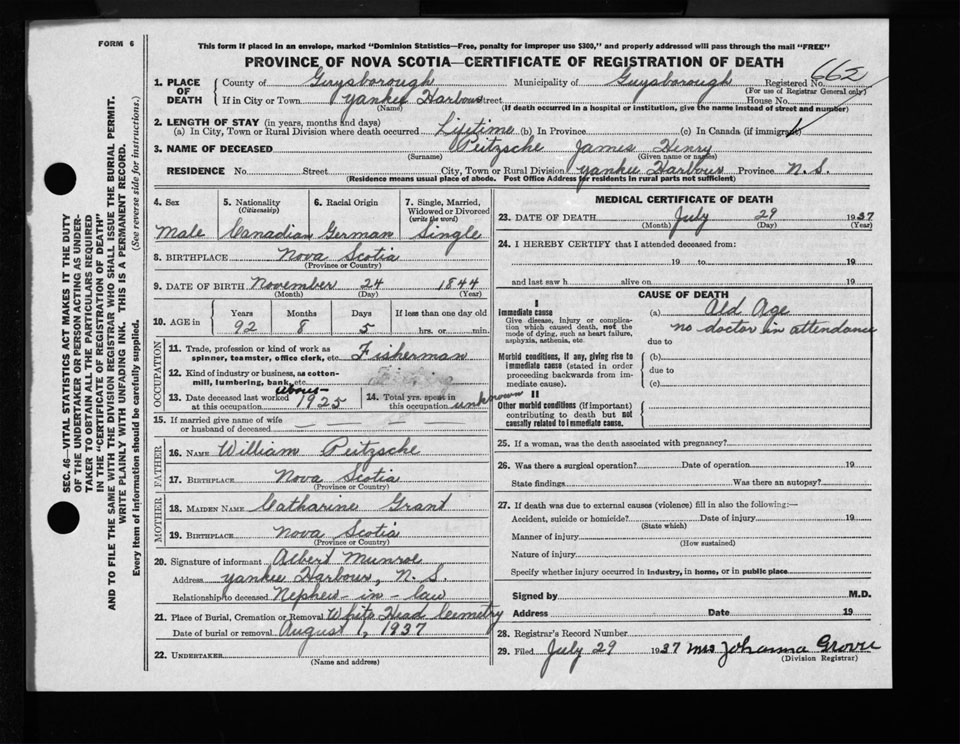 FORM 6
This form if placed in an envelope, marked "Dominion Statistics—Free, penalty for improper use $300," and properly addressed will pass through the mail "FREE"
PROVINCE OF NOVA SCOTIA—CERTIFICATE OF REGISTRATION OF DEATH
1. PLACE OF DEATH County of Guysborough Municipality of Guysborough Registered No. 662
(For use of Registrar General only)
If in City or Town Yankee Harbour street House No.
(Name) (If death occurred in a hospital or institution, give the name instead of street and number)
2. LENGTH OF STAY (in years, months and days)
(a) In City, Town or Rural Division where death occurred Lifetime (b) In Province (c) In Canada (if immigrant)
3. NAME OF DECEASED Peitzsche James Henry
(Surname) (Given name or names)
RESIDENCE No. Street City, Town or Rural Division Yankee Harbour Province N. S.
(Residence means usual place of abode. Post Office Address for residents in rural parts not sufficient)
SEC. 46—VITAL STATISTICS ACT MAKES IT THE DUTY
OF THE UNDERTAKER OR PERSON ACTING AS UNDER-
TAKER TO OBTAIN ALL THE PARTICULARS REQUIRED
IN THE "CERTIFICATE OF REGISTRATION OF DEATH"
AND TO FILE THE SAME WITH THE DIVISION REGISTRAR WHO SHALL ISSUE THE BURIAL PERMIT.
WRITE PLAINLY WITH UNFADING INK. THIS IS A PERMANENT RECORD.
Every item of information should be carefully supplied. (See reverse side for instructions.)
4. Sex 5. Nationality (Citizenship) 6. Racial Origin 7. Single, Married, Widowed or Divorced (write the word)
Male Canadian German Single
8. BIRTHPLACE Nova Scotia
(Province or Country)
9. DATE OF BIRTH November 24 1844
(Month) (Day) (Year)
10. AGE in Years Months Days If less than one day old
92 8 5 hrs. or min.
OCCUPATION
11. Trade, profession or kind of work as spinner, teamster, office clerk, etc. Fisherman
12. Kind of industry or business, as cotton-mill, lumbering, bank, etc.
13. Date deceased last worked at this occupation about 1925
14. Total yrs. spent in this occupation unknown
15. If married give name of wife or husband of deceased
FATHER
16. NAME William Peitzsche
17. BIRTHPLACE Nova Scotia
(Province or Country)
MOTHER
18. MAIDEN NAME Catharine Grant
19. BIRTHPLACE Nova Scotia
(Province or Country)
20. Signature of informant Albert Munroe
Address Yankee Harbour, N. S.
Relationship to deceased Nephew - in - law
21. Place of Burial, Cremation or Removal White Head Cemetry
Date of burial or removal August 1, 1937
22. UNDERTAKER
(Name and address)
MEDICAL CERTIFICATE OF DEATH
23. DATE OF DEATH July 29 1937
(Month) (Day) (Year)
24. I HEREBY CERTIFY that I attended deceased from:
19 to 19
and last saw h alive on 19
CAUSE OF DEATH
I
Immediate cause (a) Old Age
Give disease, injury or complication which caused death, not the mode of dying, such as heart failure, asphyxia, asthenia, etc.
no doctor in attendance
due to
Morbid conditions, if any, giving rise to immediate cause (stated in order proceeding backwards from immediate cause).
(b)
due to
(c)
II
Other morbid conditions (if important) contributing to death but not causally related to immediate cause.
25. If a woman, was the death associated with pregnancy?
26. Was there a surgical operation? Date of operation 19
State findings Was there an autopsy?
27. If death was due to external causes (violence) fill in also the following:—
Accident, suicide or homicide? Date of injury 19
(State which)
Manner of injury
(How sustained)
Nature of injury
Specify whether injury occurred in industry, in home, or in public place
Signed by M.D.
Address Date 19
28. Registrar's Record Number
29. Filed July 29 1937 Mrs Johanna Grover
(Division Registrar)